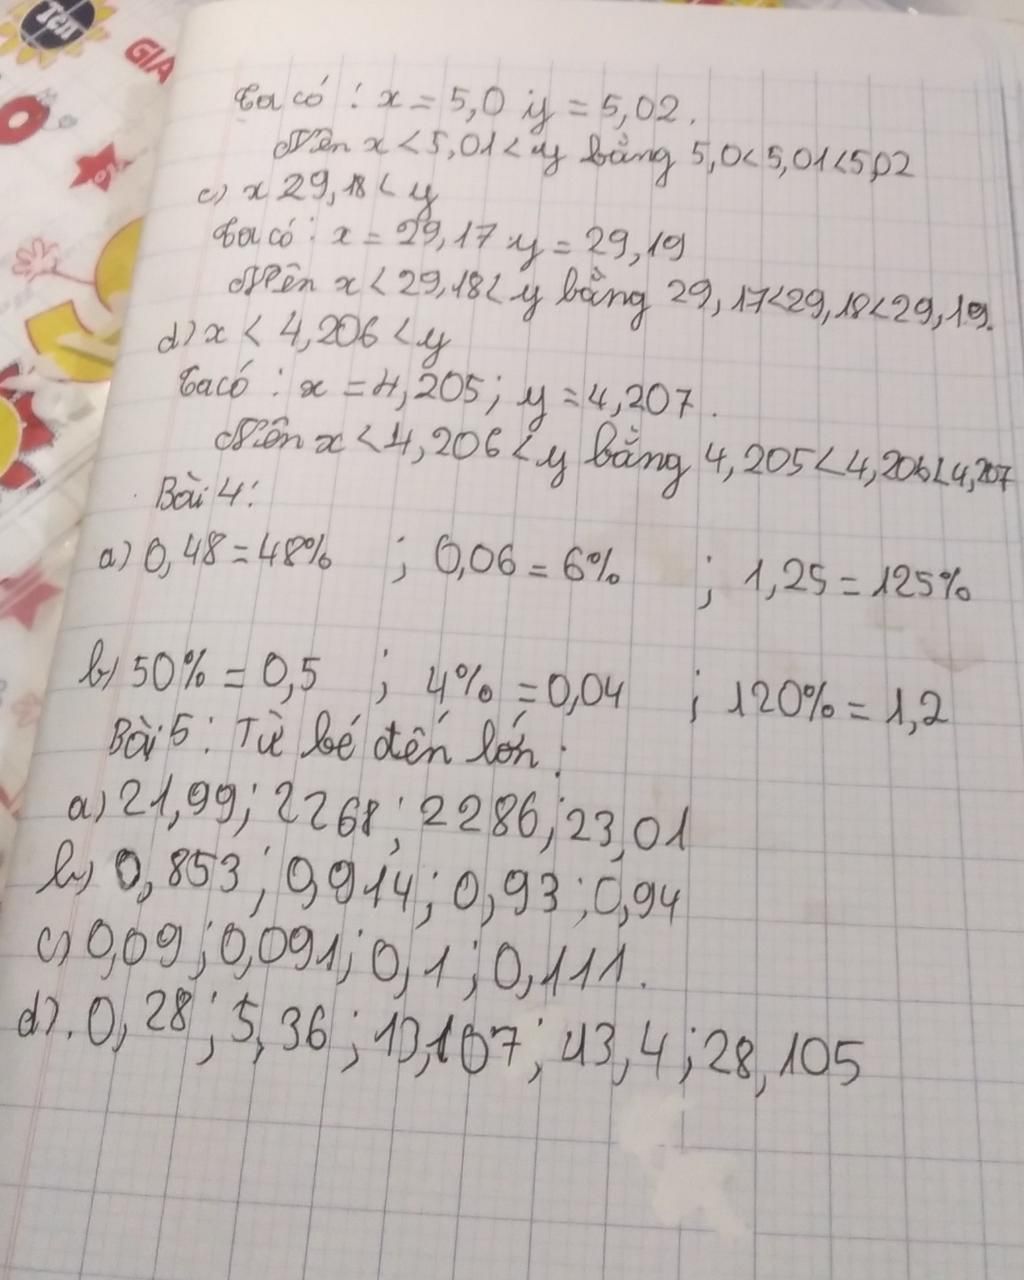 TCn
GIA
Ta có : x = 5,0 ; y = 5,02.
Nên x < 5,01 < y bằng 5,0 < 5,01 < 5,02
c) x 29,18 < y
Ta có : x = 29,17 y = 29,19
Nên x < 29,18 < y bằng 29,17 < 29,18 < 29,19.
d) x < 4,206 < y
Ta có : x = 4,205 ; y = 4,207.
Nên x < 4,206 < y bằng 4,205 < 4,206 < 4,207
Bài 4:
a) 0,48 = 48% ; 0,06 = 6% ; 1,25 = 125%
b) 50% = 0,5 ; 4% = 0,04 ; 120% = 1,2
Bài 5 : Từ bé đến lớn :
a) 21,99 ; 2268 ; 2286 ; 23,01
b) 0,853 ; 0,914 ; 0,93 ; 0,94
c) 0,09 ; 0,091 ; 0,1 ; 0,111.
d). 0,28 ; 5,36 ; 13,107 ; 43,4 ; 28,105